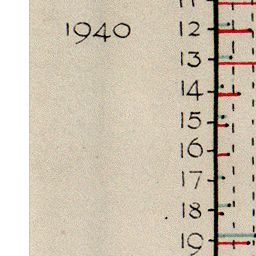 11
1940
12
13
14
15
16
17
18
19